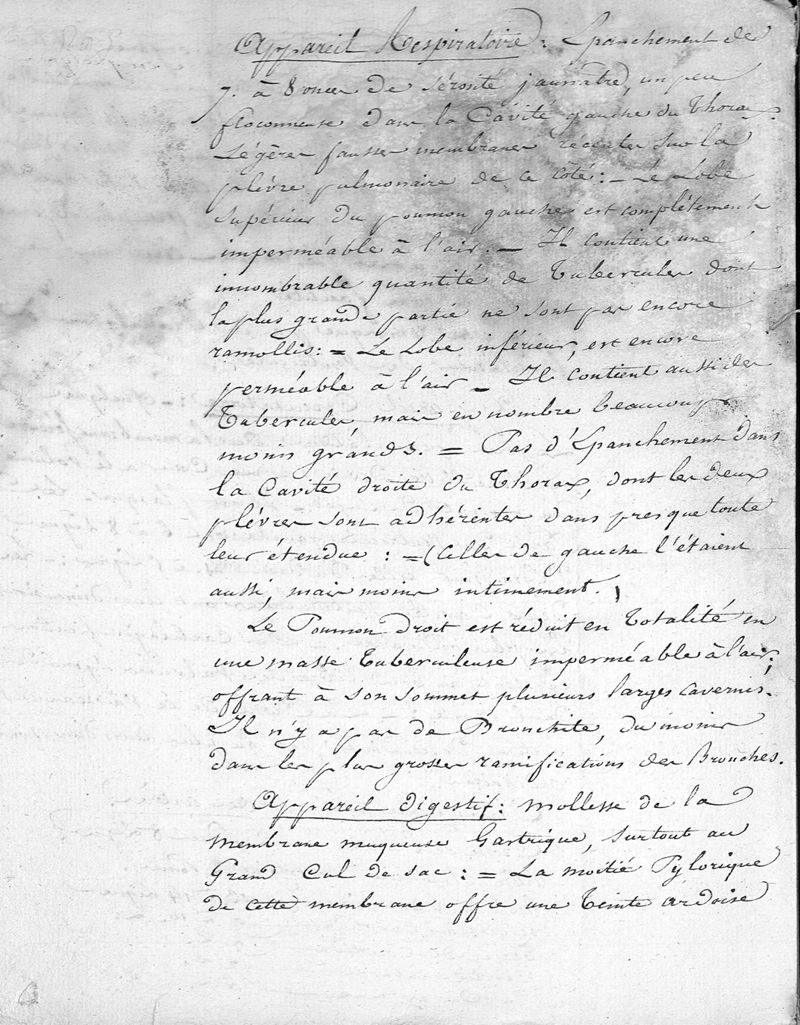 Appareil Respiratoire : Epanchement de
7. à 8 onces de sérosité jaunâtre, un peu
floconneuse dans la Cavité gauche du Thorax.
Légères fausses membranes récentes sur la
plèvre pulmonaire de ce côté : – Le Lobe
supérieur du poumon gauche est complètement
imperméable à l'air. – Il contient une
innombrable quantité de Tubercules dont
la plus grande partie ne sont pas encore
ramollis : = Le Lobe inférieur, est encore
perméable à l'air – Il contient aussi des
Tubercules, mais en nombre beaucoup
moins grands. = Pas d'Epanchement dans
la Cavité droite du Thorax, dont les deux
plèvres sont adhérentes dans presque toute
leur étendue : = (Celles de gauche l'étaient
aussi, mais moins intimement. )
Le Poumon droit est réduit en Totalité en
une masse Tuberculeuse imperméable à l'air;
offrant à son sommet plusieurs larges cavernes.
Il n'y a pas de Bronchite, du moins
dans les plus grosses ramifications des Bronches.
Appareil digestif : mollesse de la
membrane muqueuse Gastrique, surtout au
Grand Cul de sac : = La moitié Pylorique
de cette membrane offre une Teinte ardoise